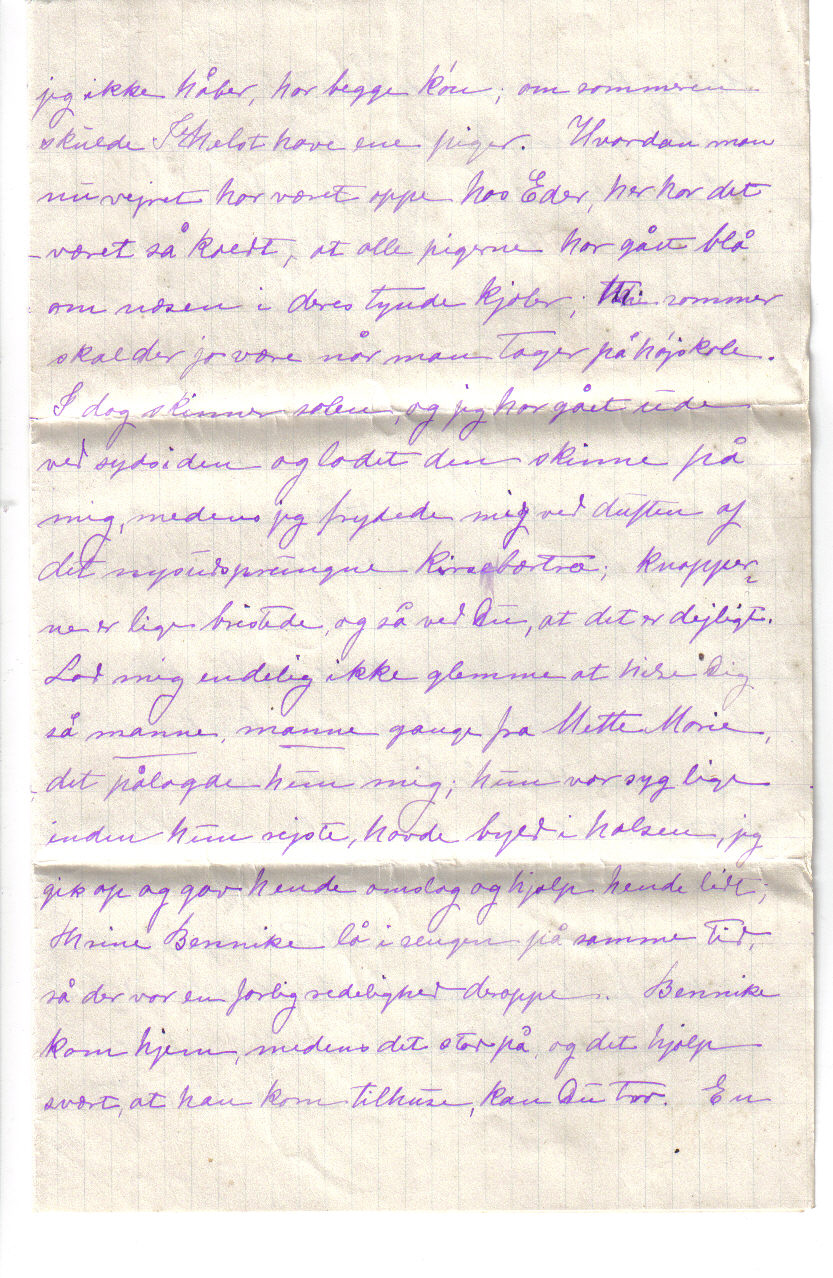 jeg ikke håber, har begge køn; om sommeren
skulde I helst have ene piger. Hvordan mon
nu vejret har været oppe hos Eder, her har det
været så koldt, at alle pigerne har gået blå
om næsen i deres tynde kjoler; thi sommer
skal der jo være når man tager på højskole.
I dag skinner solen, og jeg har gået ude
ved sydsiden og ladet den skinne på
mig, medens jeg frydede mig ved duften af
det nysudsprungne kirsebærtræ; knopper-
ne er lige bristede, og så ved Du, at det er dejligt.
Lad mig endelig ikke glemme at hilse Dig
så manne, manne gange fra Mette Marie,
det pålagde hun mig; hun var syg lige
inden hun rejste, havde byld i halsen, jeg
gik op og gav hende omslag og hjalp hende lidt;
Thrine Bennike lå i sengen på samme tid,
så der var en farlig redelighed deroppe. Bennike
kom hjem, medens det stod på, og det hjalp
svært, at han kom tilhuse, kan Du tro. En